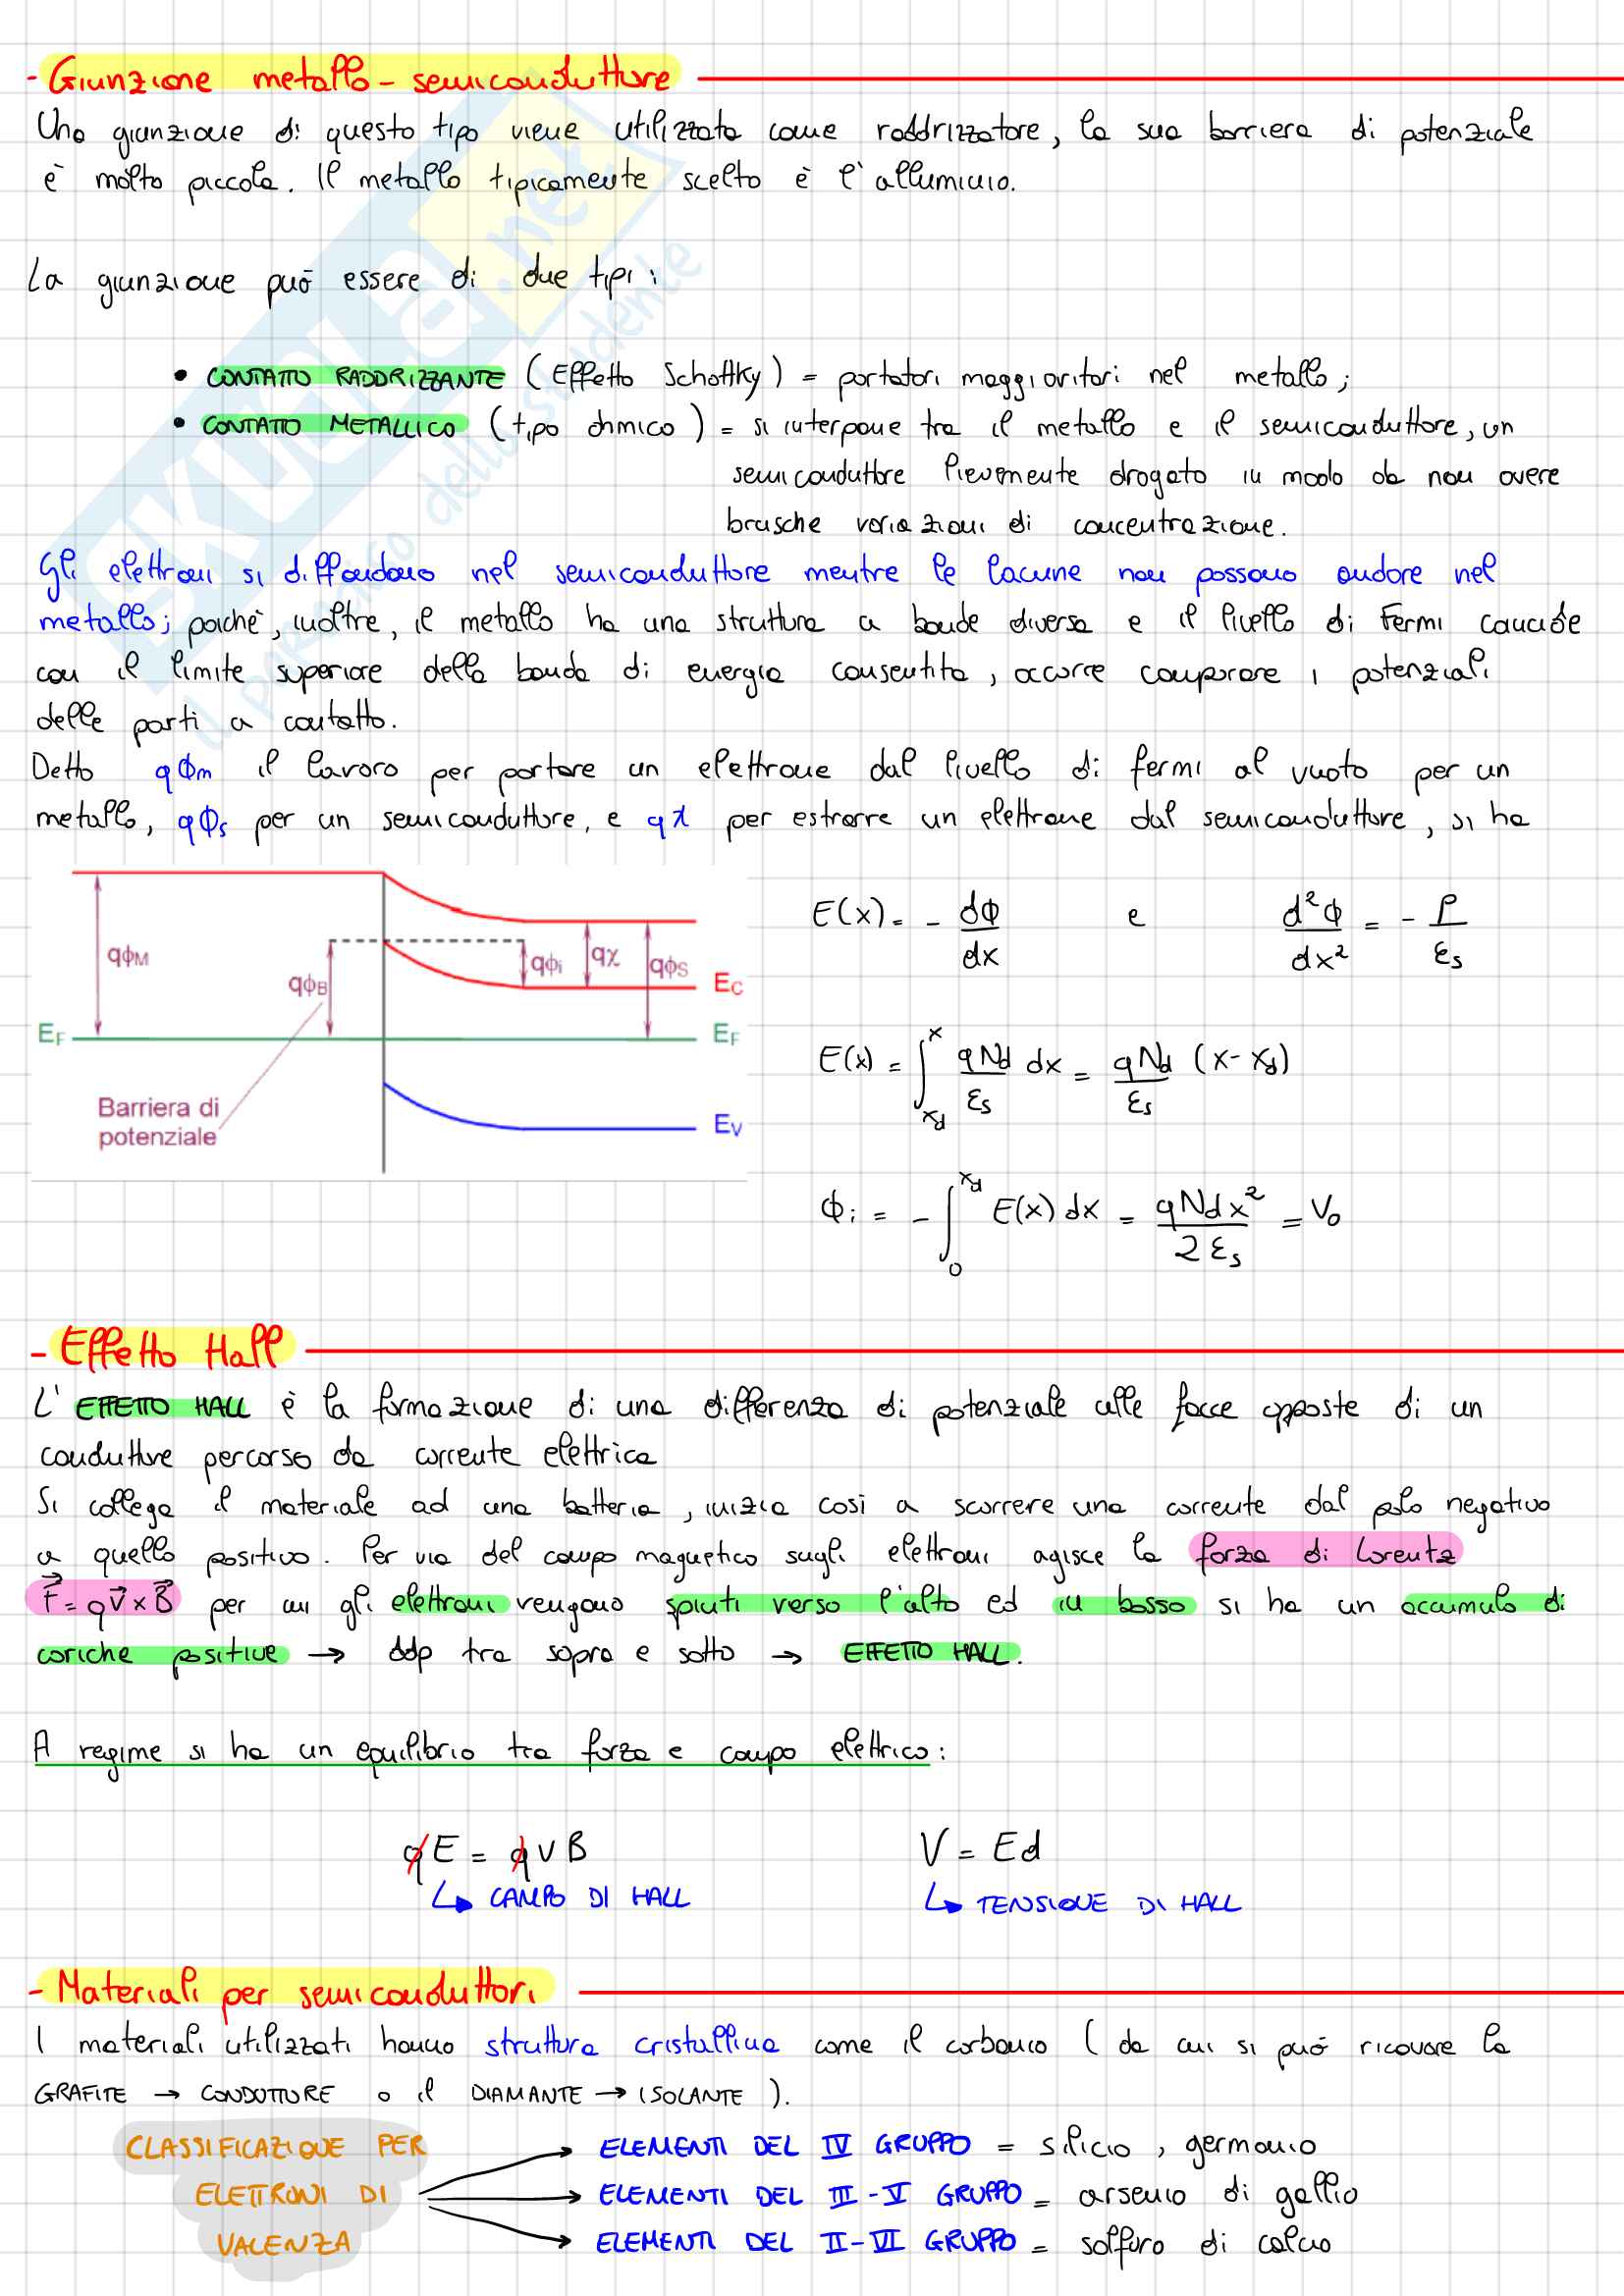 - Giunzione metallo-semiconduttore
Una giunzione di questo tipo viene utilizzata come raddrizzatore, la sua barriera di potenziale
è molto piccola. Il metallo tipicamente scelto è l'allumiuio.
La giunzione può essere di due tipi:
• CONTATTO RADDRIZZANTE (Effetto Schottky) = portatori maggioritari nel metallo;
• CONTATTO METALLICO (tipo ohmico) = si interpone tra il metallo e il semiconduttore, un
semiconduttore lievemente drogato in modo da non avere
brusche variazioni di concentrazione.
Gli elettroni si diffondono nel semiconduttore mentre le lacune non possono andare nel
metallo; poichè, inoltre, il metallo ha una struttura a bande diversa e il livello di Fermi coincide
con il limite superiore della banda di energia consentita, occorre comparare i potenziali
delle parti a contatto.
Detto qΦm il lavoro per portare un elettrone dal livello di fermi al vuoto per un
metallo, qΦs per un semiconduttore, e qχ per estrarre un elettrone dal semiconduttore, si ha
E(x) = - dΦ/dx e d²Φ/dx² = - ρ/εs
qϕM
qϕB
qϕi
qχ
qϕS
EC
EF
EF
Barriera di
potenziale
EV
E(x) = ∫_xd^x qNd/εs dx = qNd/εs (x-xd)
Φi = - ∫_0^xd E(x) dx = qNdx²/2εs = V₀
- Effetto Hall
L'EFFETTO HALL è la formazione di una differenza di potenziale alle facce opposte di un
conduttore percorso da corrente elettrica
Si collega il materiale ad una batteria, inizia così a scorrere una corrente dal polo negativo
a quello positivo. Per via del campo magnetico sugli elettroni agisce la forza di Lorentz
F⃗ = qv⃗ × B⃗ per cui gli elettroni vengono spinti verso l'alto ed in basso si ha un accumulo di
cariche positive → ddp tra sopra e sotto → EFFETTO HALL.
A regime si ha un equilibrio tra forza e campo elettrico:
qE = qvB V = Ed
↳ CAMPO DI HALL ↳ TENSIONE DI HALL
- Materiali per semiconduttori
I materiali utilizzati hanno struttura cristallina come il carbonio (da cui si può ricavare la
GRAFITE → CONDUTTORE o il DIAMANTE → ISOLANTE).
CLASSIFICAZIONE PER
ELETTRONI DI
VALENZA
ELEMENTI DEL IV GRUPPO = silicio, germanio
ELEMENTI DEL III-V GRUPPO = arsenio di gallio
ELEMENTI DEL II-VI GRUPPO = solfuro di calcio
SKUOLA.net
il paradiso dello studente